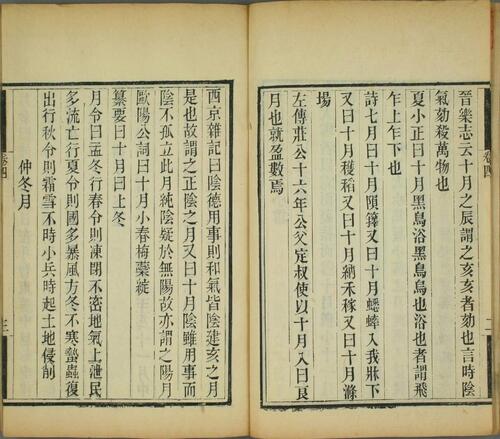 晉樂志云十月之辰謂之亥亥者劾也言時陰
氣劾殺萬物也
夏小正曰十月黑鳥浴黑鳥烏也浴也者謂飛
乍上乍下也
詩七月曰十月隕籜又曰十月蟋蟀入我牀下
又曰十月穫稻又曰十月納禾稼又曰十月滌
場
左傳莊公十六年公父定叔使以十月入曰良
月也就盈數焉
卷四
二
西京雜記曰陰德用事則和氣皆陰建亥之月
是也故謂之正陰之月又曰十月陰雖用事而
陰不孤立此月純陰疑於無陽故亦謂之陽月
歐陽公詞曰十月小春梅蘂綻
纂要曰十月曰上冬
月令曰孟冬行春令則凍閉不密地氣上泄民
多流亡行夏令則國多暴風方冬不寒蟄蟲復
出行秋令則霜雪不時小兵時起土地侵削
仲冬月
卷四
三